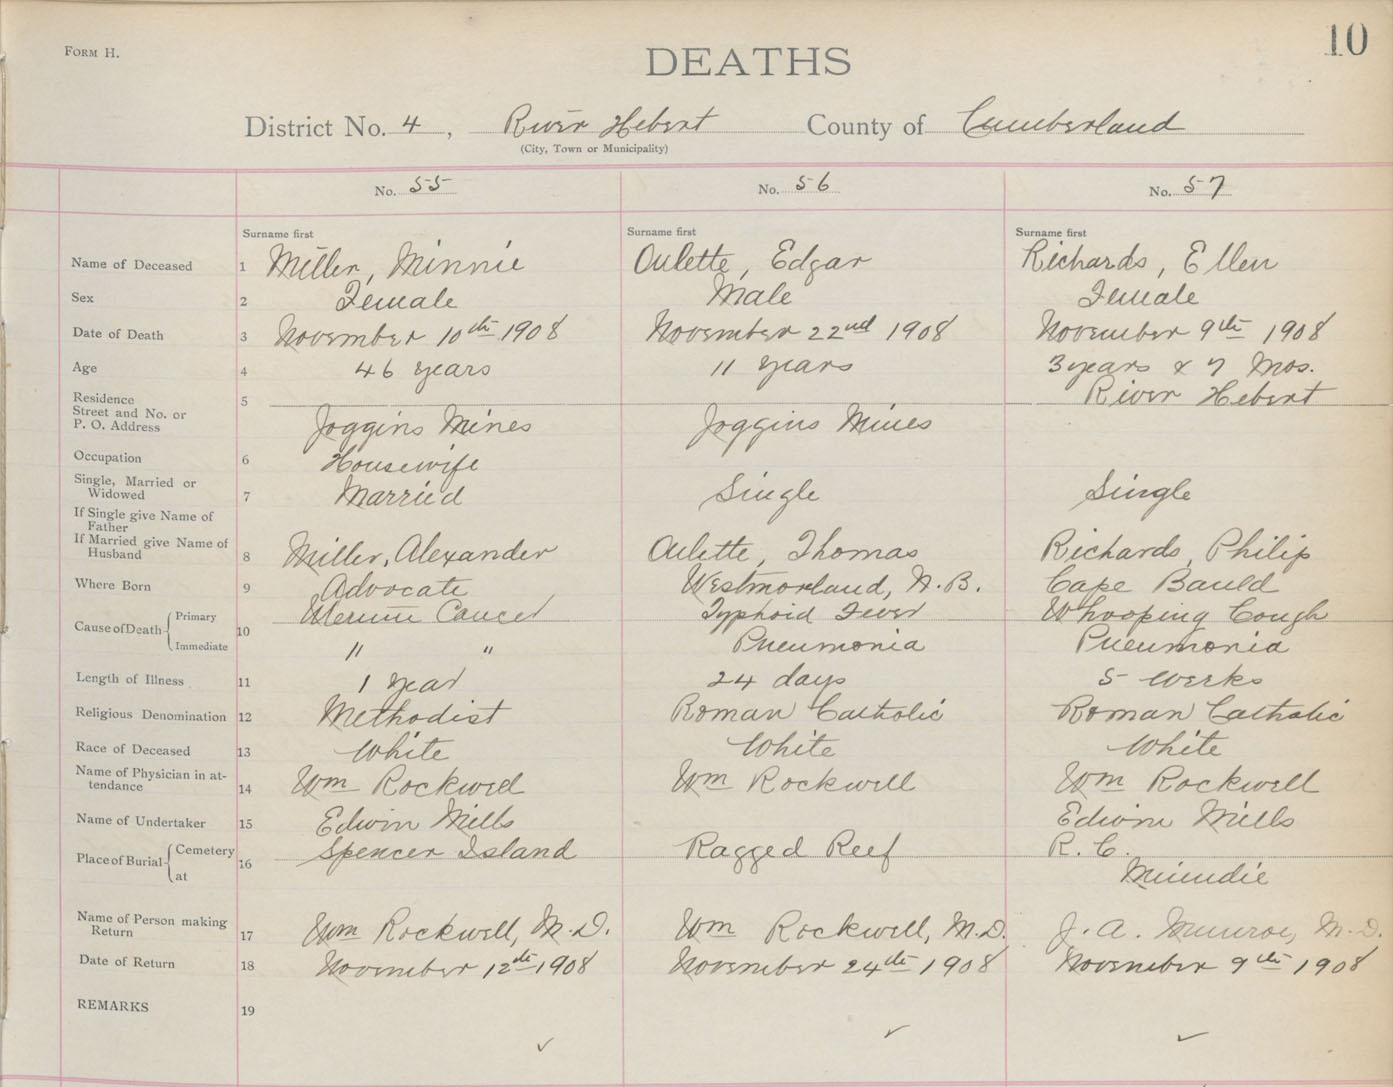 10
FORM H.
DEATHS
District No. 4, River Hebert County of Cumberland
(City, Town or Municipality)
No. 55 No. 56 No. 57
Surname first Surname first Surname first
Name of Deceased 1 Miller, Minnie Oulette, Edgar Richards, Ellen
Sex 2 Female Male Female
Date of Death 3 November 10th 1908 November 22nd 1908 November 9th 1908
Age 4 46 years 11 years 3 years & 7 Mos.
Residence 5 River Hebert
Street and No. or
P. O. Address Joggins Mines Joggins Mines
Occupation 6 Housewife
Single, Married or
Widowed 7 Married Single Single
If Single give Name of
Father
If Married give Name of
Husband 8 Miller, Alexander Oulette, Thomas Richards, Philip
Where Born 9 Advocate Westmorland, N.B. Cape Bauld
Cause of Death 10 Primary Uterine Cancer Typhoid Fever Whooping Cough
Immediate " " Pneumonia Pneumonia
Length of Illness 11 1 year 24 days 5 weeks
Religious Denomination 12 Methodist Roman Catholic Roman Catholic
Race of Deceased 13 White White White
Name of Physician in at-
tendance 14 Wm Rockwell Wm Rockwell Wm Rockwell
Name of Undertaker 15 Edwin Mills Edwin Mills
Place of Burial 16 Cemetery Spencer Island Ragged Reef R. C.
at Minudie
Name of Person making
Return 17 Wm Rockwell, M.D. Wm Rockwell, M.D. J. A. Munroe, M.D.
Date of Return 18 November 12th 1908 November 24th 1908 November 9th 1908
REMARKS 19